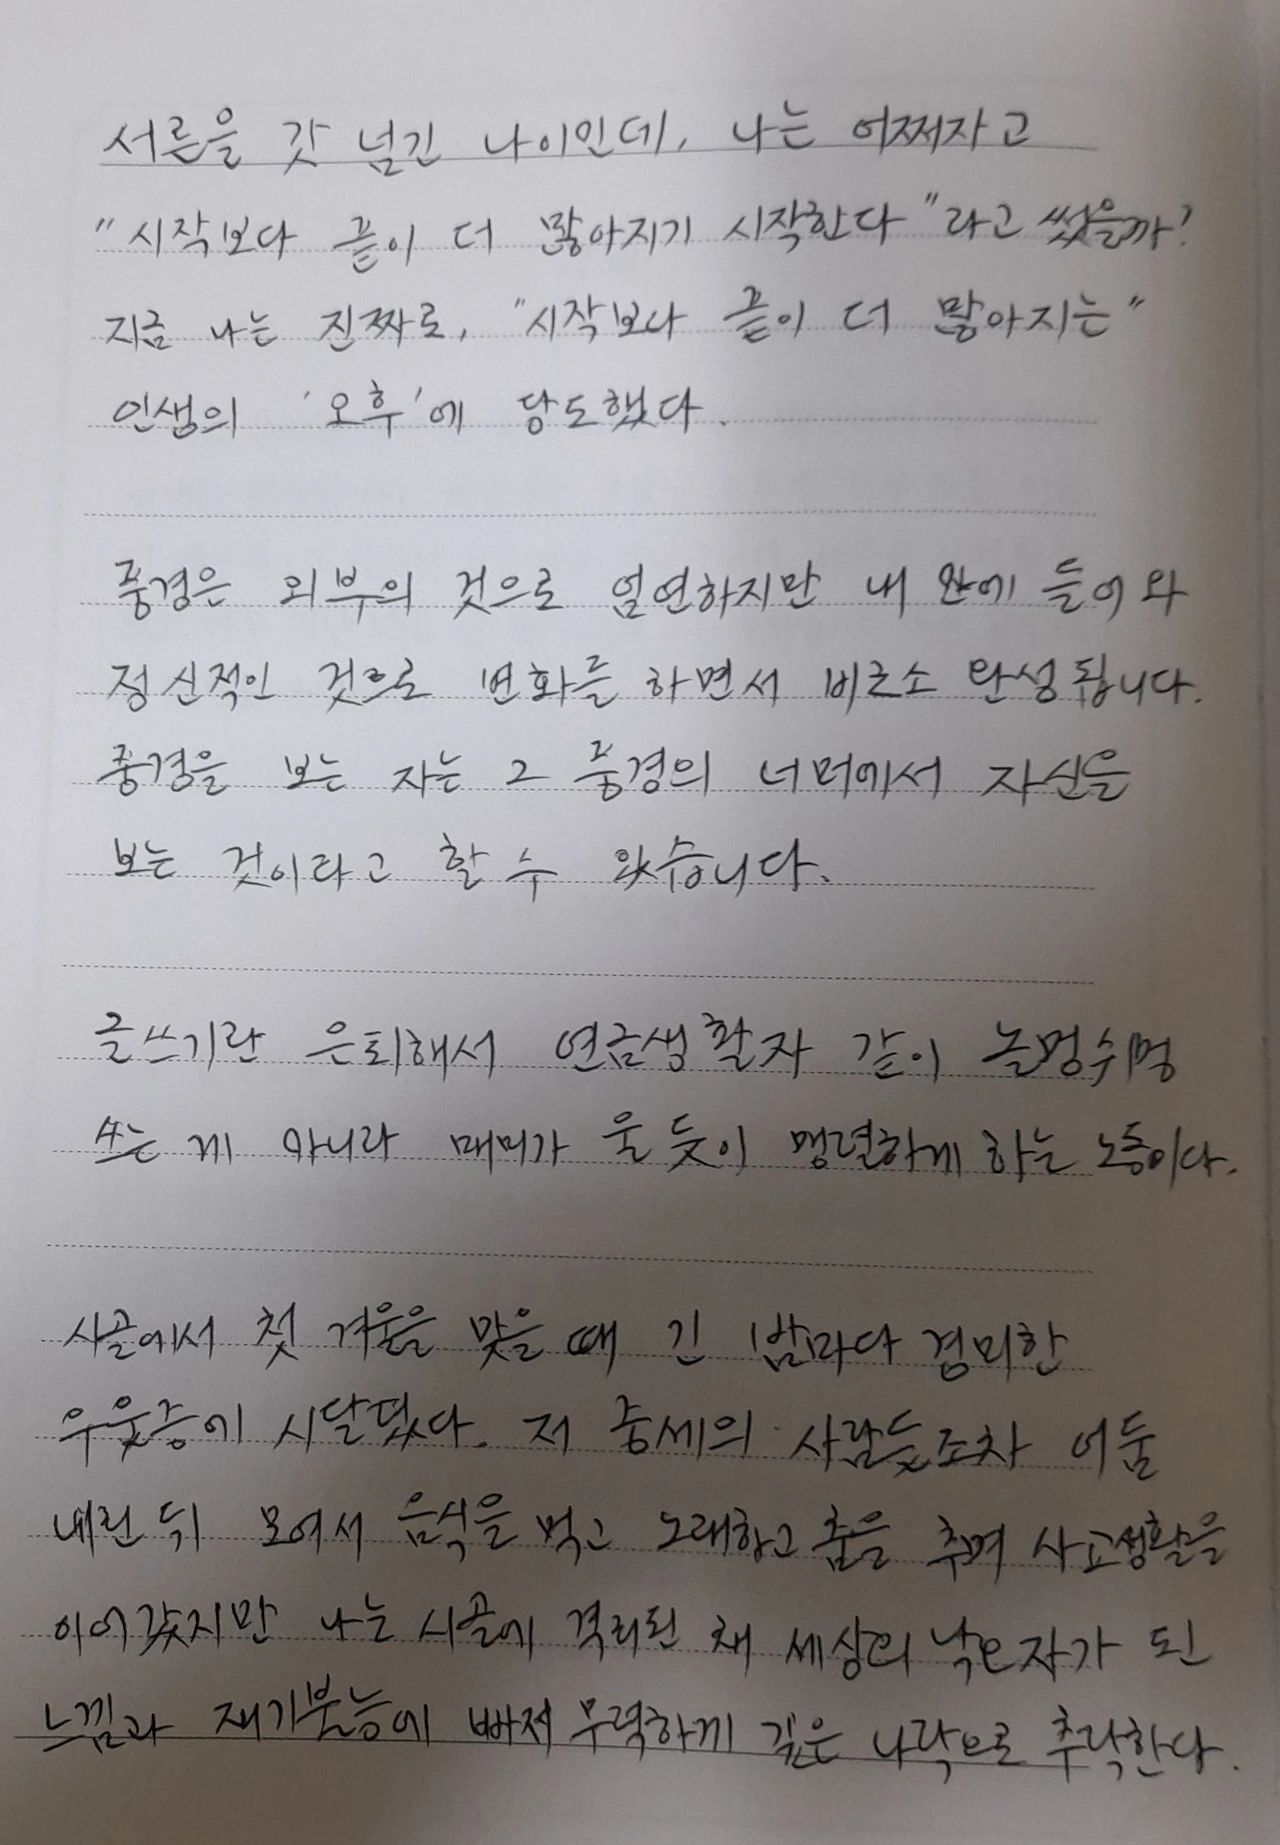 서른을 갓 넘긴 나이인데, 나는 어쩌자고
"시작보다 끝이 더 많아지기 시작한다"라고 썼을까?
지금 나는 진짜로, "시작보다 끝이 더 많아지는"
인생의 '오후'에 당도했다.
풍경은 외부의 것으로 엄연하지만 내 안에 들어와
정신적인 것으로 변화를 하면서 비로소 완성됩니다.
풍경을 보는 자는 그 풍경의 너머에서 자신을
보는 것이라고 할 수 있습니다.
글쓰기란 은퇴해서 연금생활자 같이 놀멍쉬멍
쓰는 게 아니라 매미가 울 듯이 맹렬하게 하는 노동이다.
시골에서 첫 겨울을 맞을 때 긴 밤마다 경미한
우울증에 시달렸다. 저 중세의 사람들조차 어둠
내린 뒤 모여서 음식을 먹고 노래하고 춤을 추며 사교생활을
이어갔지만 나는 시골에 격리된 채 세상의 낙오자가 된
느낌과 재기불능에 빠져 무력하게 깊은 나락으로 추락한다.